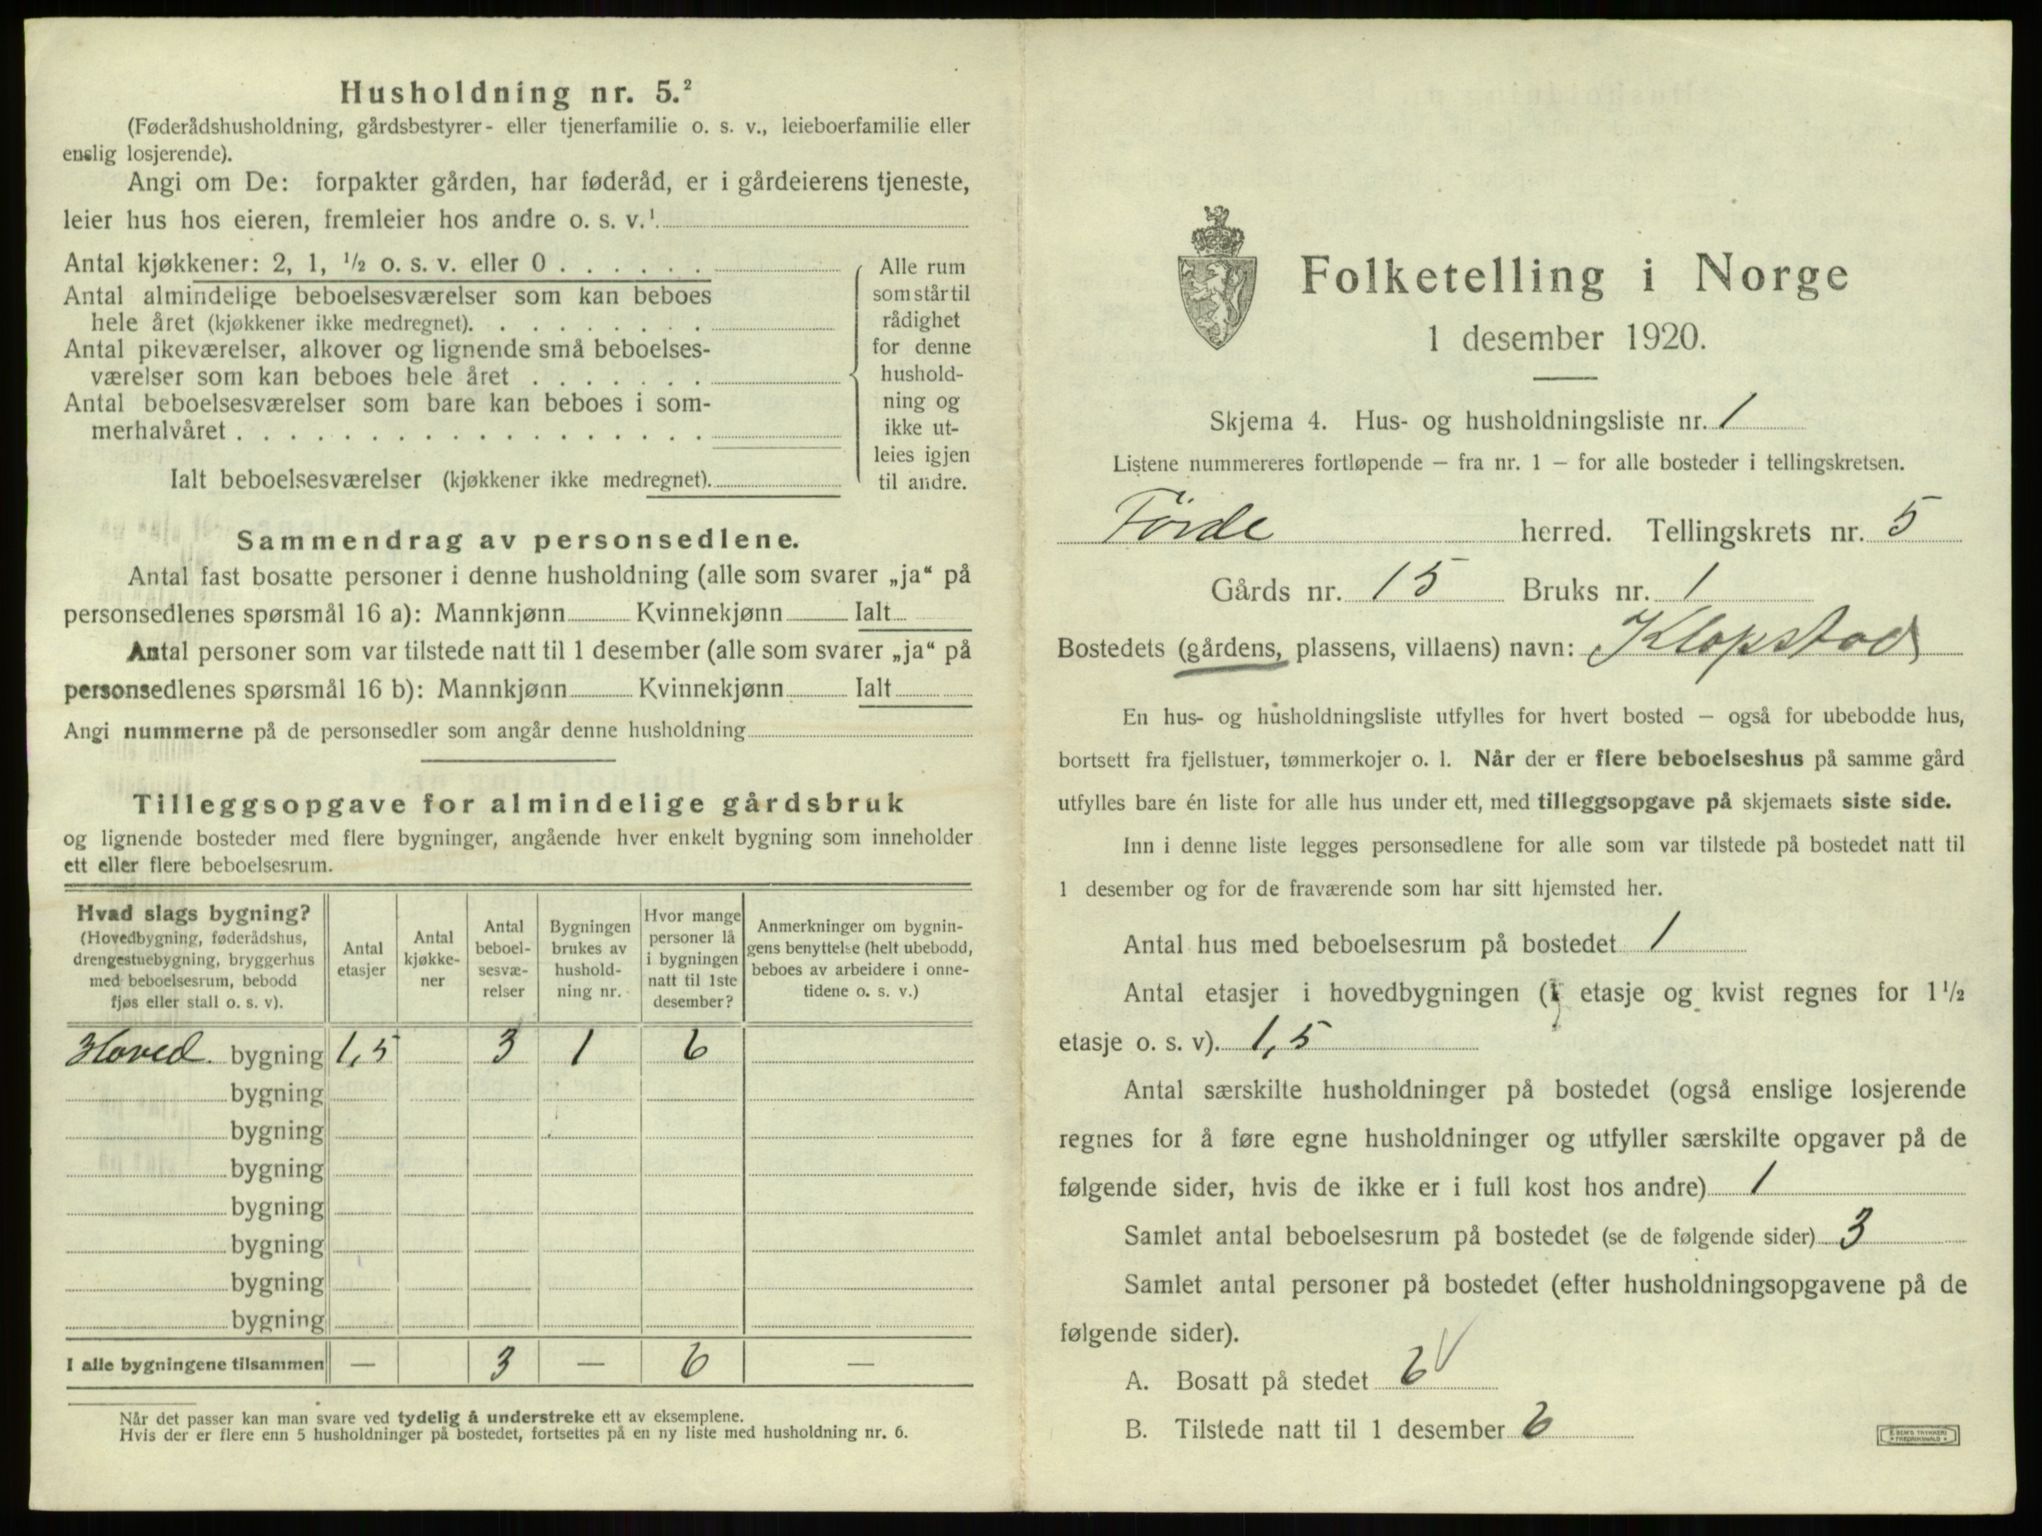 Husholdning nr. 5.²
(Føderådshusholdning, gårdsbestyrer- eller tjenerfamilie o. s. v., leieboerfamilie eller
enslig losjerende).
Angi om De: forpakter gården, har føderåd, er i gårdeierens tjeneste,
leier hus hos eieren, fremleier hos andre o. s. v.¹
Antal kjøkkener: 2, 1, ½ o. s. v. eller 0 . . . . . .
Antal almindelige beboelsesværelser som kan beboes
hele året (kjøkkener ikke medregnet). . . . . . . . .
Antal pikeværelser, alkover og lignende små beboelses-
værelser som kan beboes hele året . . . . . . .
Antal beboelsesværelser som bare kan beboes i som-
merhalvåret . . . . . . . . . . . . . . . . . .
Ialt beboelsesværelser (kjøkkener ikke medregnet).
Alle rum
som står til
rådighet
for denne
hushold-
ning og
ikke ut-
leies igjen
til andre.
Sammendrag av personsedlene.
Antal fast bosatte personer i denne husholdning (alle som svarer „ja“ på
personsedlenes spørsmål 16 a): Mannkjønn Kvinnekjønn Ialt
Antal personer som var tilstede natt til 1 desember (alle som svarer „ja“ på
personsedlenes spørsmål 16 b): Mannkjønn Kvinnekjønn Ialt
Angi nummerne på de personsedler som angår denne husholdning
Tilleggsopgave for almindelige gårdsbruk
og lignende bosteder med flere bygninger, angående hver enkelt bygning som inneholder
ett eller flere beboelsesrum.
Hvad slags bygning?
(Hovedbygning, føderådshus,
drengestuebygning, bryggerhus
med beboelsesrum, bebodd
fjøs eller stall o. s. v).
Antal
etasjer
Antal
kjøkke-
ner
Antal
beboel-
sesvæ-
relser
Bygningen
brukes av
hushold-
ning nr.
Hvor mange
personer lå
i bygningen
natt til 1ste
desember?
Anmerkninger om bygnin-
gens benyttelse (helt ubebodd,
beboes av arbeidere i onne-
tidene o. s. v.)
Hoved bygning 1,5 3 1 6
bygning
bygning
bygning
bygning
bygning
bygning
bygning
I alle bygningene tilsammen — 3 — 6 —
Når det passer kan man svare ved tydelig å understreke ett av eksemplene.
Hvis der er flere enn 5 husholdninger på bostedet, fortsettes på en ny liste med husholdning nr. 6.
Folketelling i Norge
1 desember 1920.
Skjema 4. Hus- og husholdningsliste nr. 1
Listene nummereres fortløpende — fra nr. 1 — for alle bosteder i tellingskretsen.
Förde herred. Tellingskrets nr. 5
Gårds nr. 15 Bruks nr. 1
Bostedets (gårdens, plassens, villaens) navn: Klopstad
En hus- og husholdningsliste utfylles for hvert bosted — også for ubebodde hus,
bortsett fra fjellstuer, tømmerkojer o. l. Når der er flere beboelseshus på samme gård
utfylles bare én liste for alle hus under ett, med tilleggsopgave på skjemaets siste side.
Inn i denne liste legges personsedlene for alle som var tilstede på bostedet natt til
1 desember og for de fraværende som har sitt hjemsted her.
Antal hus med beboelsesrum på bostedet 1
Antal etasjer i hovedbygningen (1 etasje og kvist regnes for 1½
etasje o. s. v). 1,5
Antal særskilte husholdninger på bostedet (også enslige losjerende
regnes for å føre egne husholdninger og utfyller særskilte opgaver på de
følgende sider, hvis de ikke er i full kost hos andre) 1
Samlet antal beboelsesrum på bostedet (se de følgende sider) 3
Samlet antal personer på bostedet (efter husholdningsopgavene på de
følgende sider).
A. Bosatt på stedet 6
B. Tilstede natt til 1 desember 6